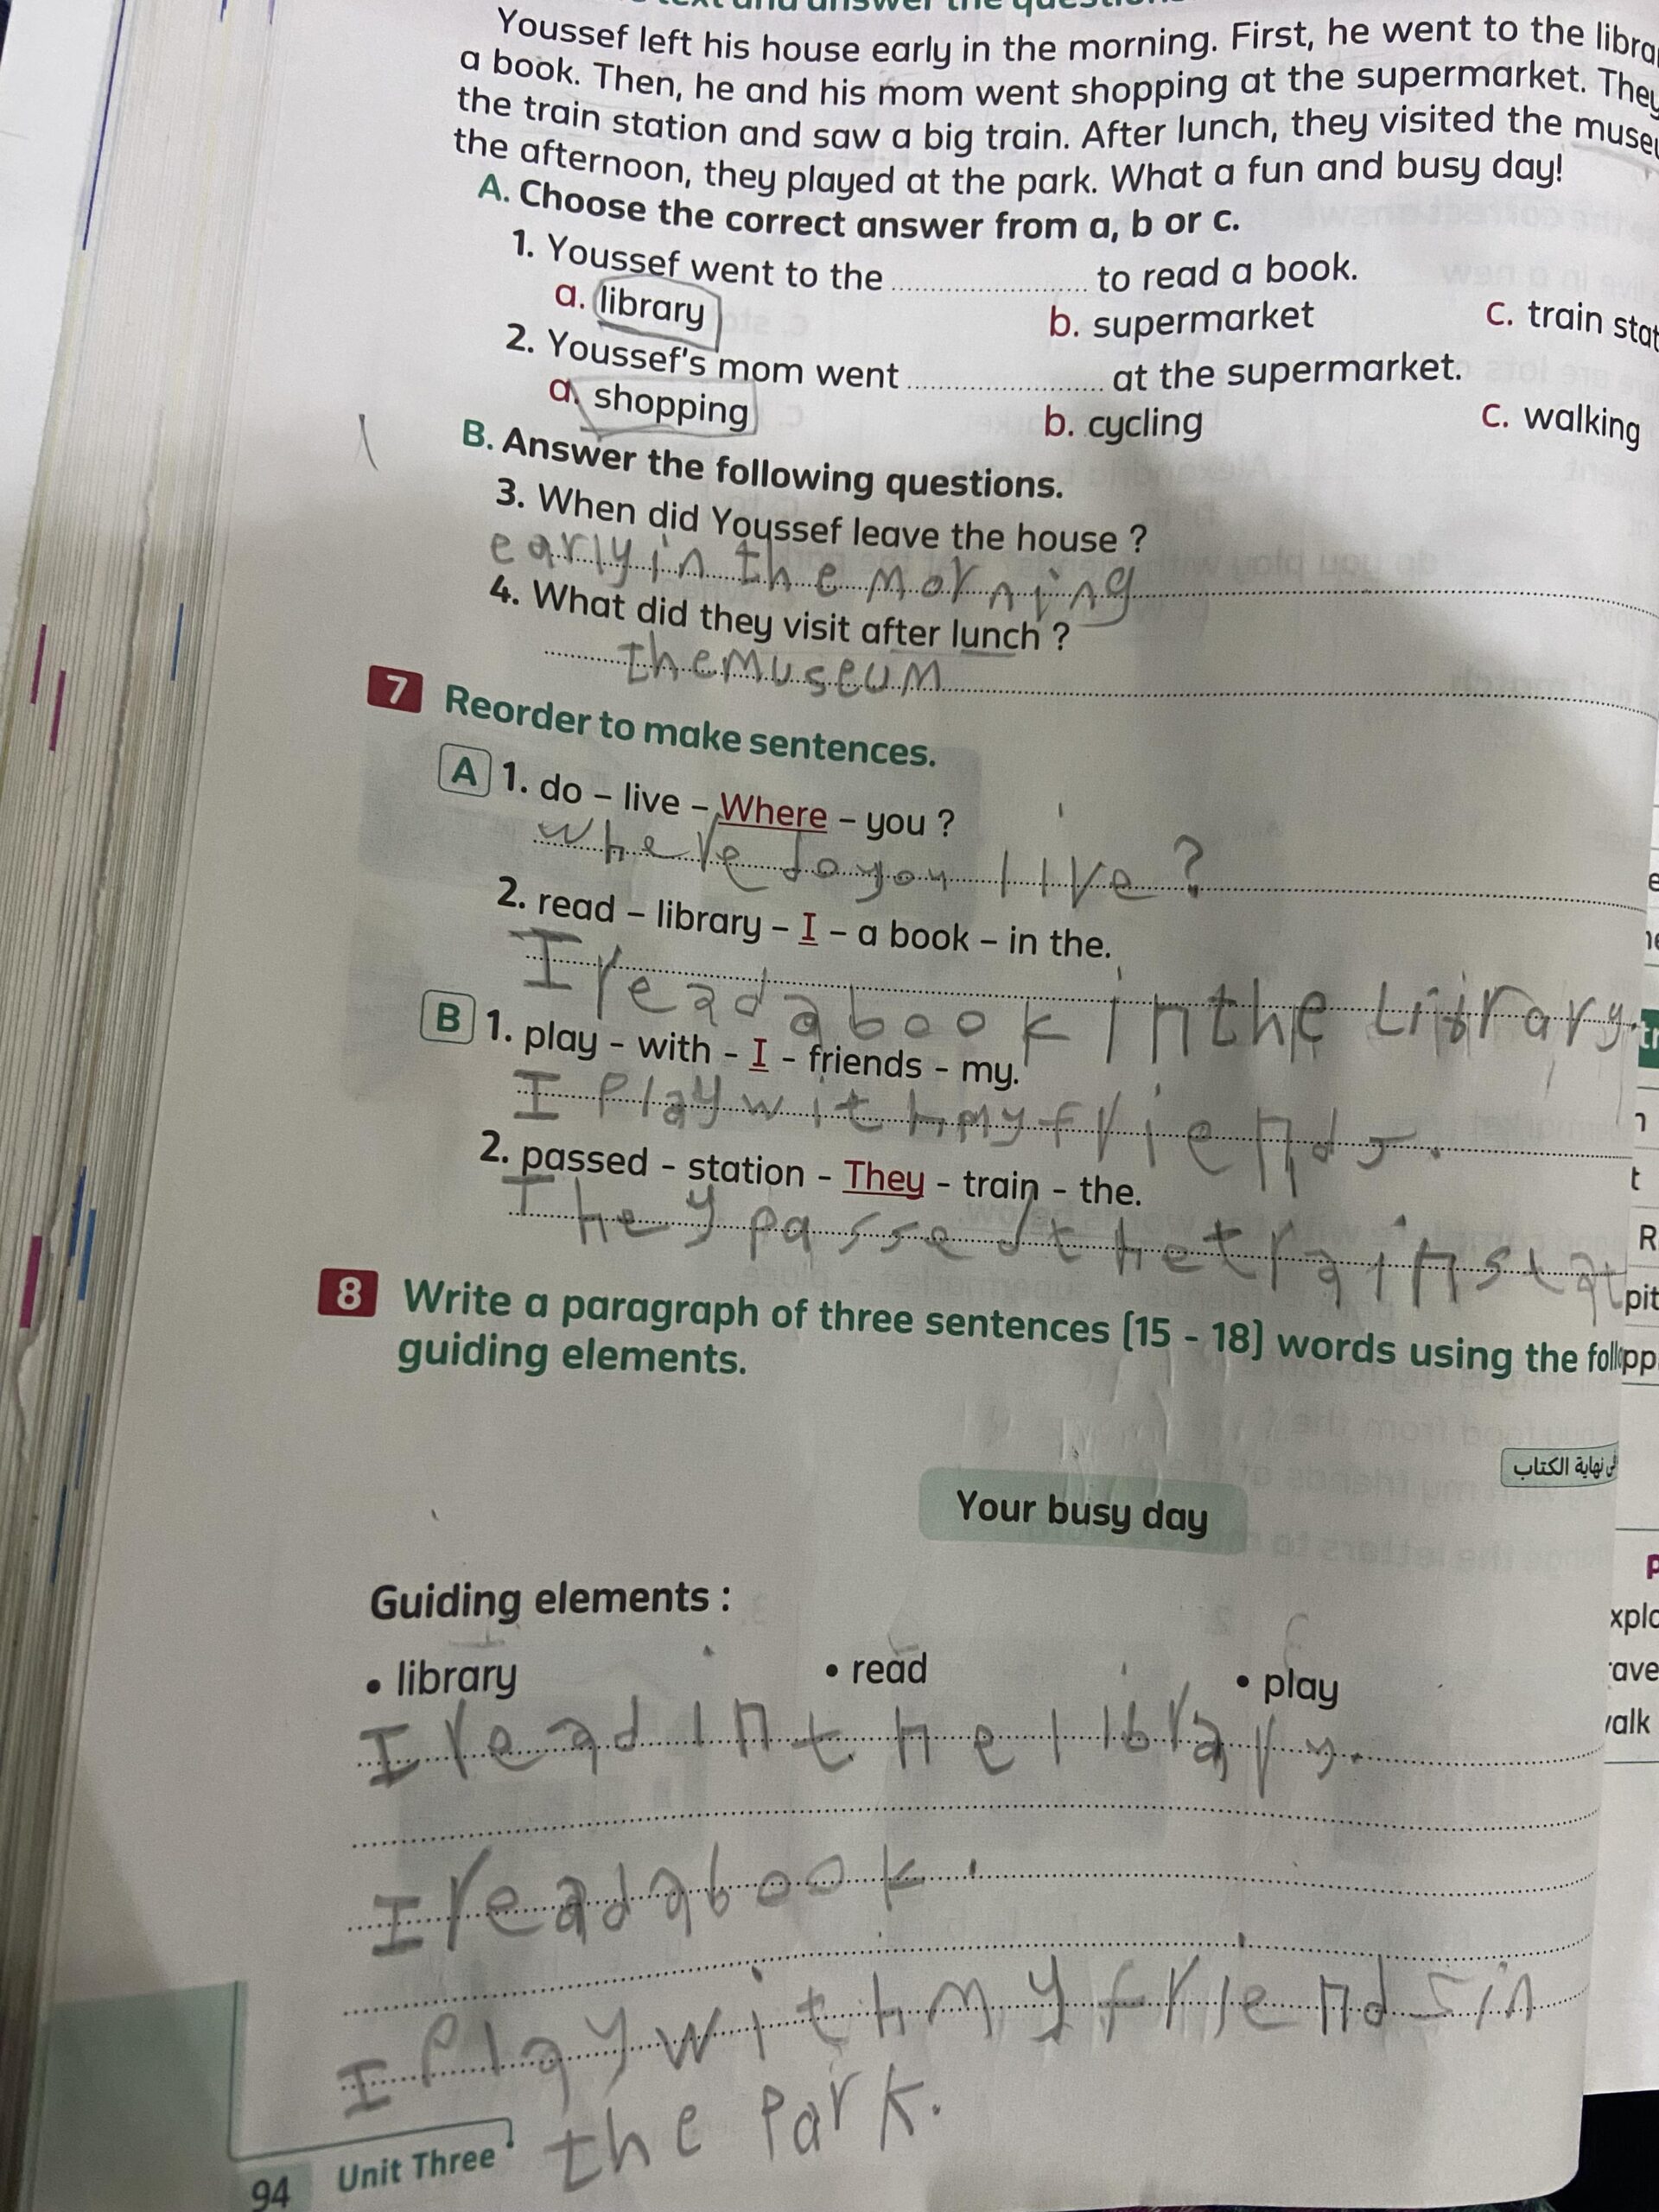 text and answer the questions
Youssef left his house early in the morning. First, he went to the
a book. Then, he and his mom went shopping at the supermarket. They
the train station and saw a big train. After lunch, they visited the
the afternoon, they played at the park. What a fun and busy day!
A. Choose the correct answer from a, b or c.
1. Youssef went to the .................... to read a book.
a. library b. supermarket c. train
2. Youssef's mom went .................... at the supermarket.
a. shopping b. cycling c. walking
B. Answer the following questions.
3. When did Youssef leave the house ?
early in the morning
4. What did they visit after lunch ?
the museum
7 Reorder to make sentences.
A 1. do – live – Where – you ?
where do you live ?
2. read – library – I – a book – in the.
I read a book in the Library.
B 1. play - with - I - friends - my.
I Play with my friends.
2. passed - station - They - train - the.
They passed the train stat
8 Write a paragraph of three sentences (15 - 18) words using the
guiding elements.
نهاية الكتاب
Your busy day
Guiding elements :
• library • read • play
I read in the library.
I read a book.
I Play with my friends in
the Park.
94 Unit Three